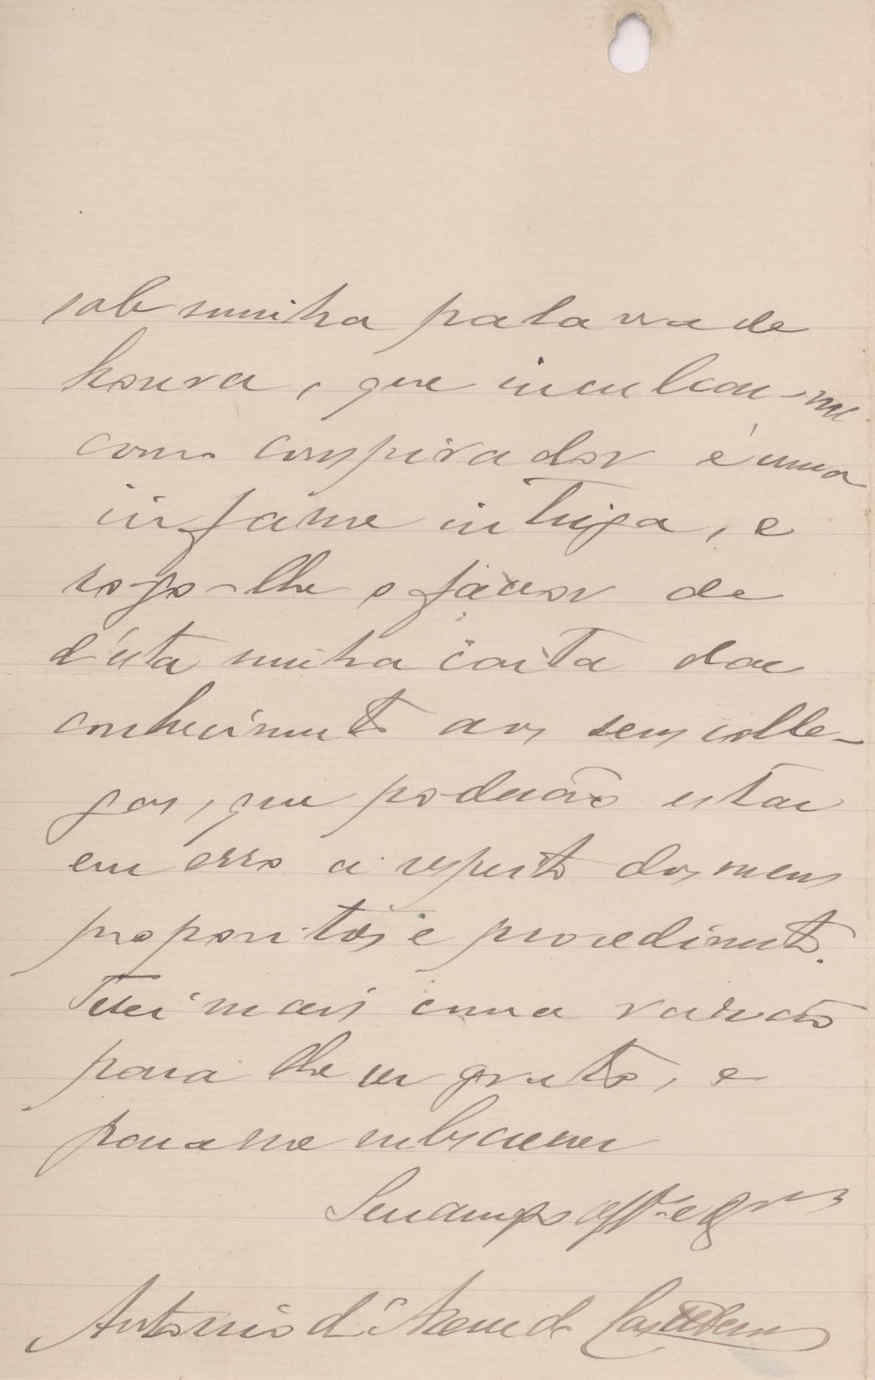 sob minha palavra de
honra, que inculcar-me
como conspirador é uma
infame intriga, e
rogo-lhe o favor de
d'esta minha carta dar
conhecimento aos seus colle-
gas, que poderão estar
em erro a respeito dos meus
propositos e procedimento.
Terei mais uma razão
para lhe ser grato, e
para me subscrever
Seu amigo aff.e e
Antonio d'Azevedo Castello